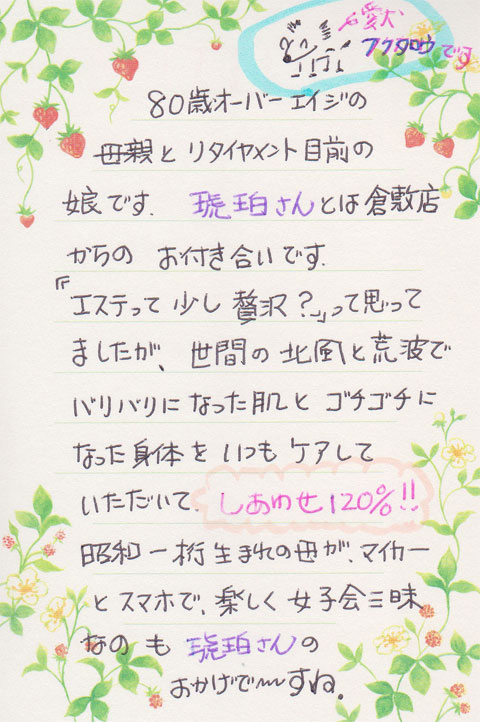 愛犬
フクタロウです
80歳オーバーエイジの
母親とリタイヤメント目前の
娘です. 琥珀さんとは倉敷店
からの お付き合いです.
『エステって少し贅沢?』って思って
ましたが、世間の北風と荒波で
バリバリになった肌とゴチゴチに
なった身体をいつもケアして
いただいて、しあわせ120%!!
昭和一桁生まれの母が、マイカー
とスマホで、楽しく女子会三昧
なのも琥珀さんの
おかげで〜すね。